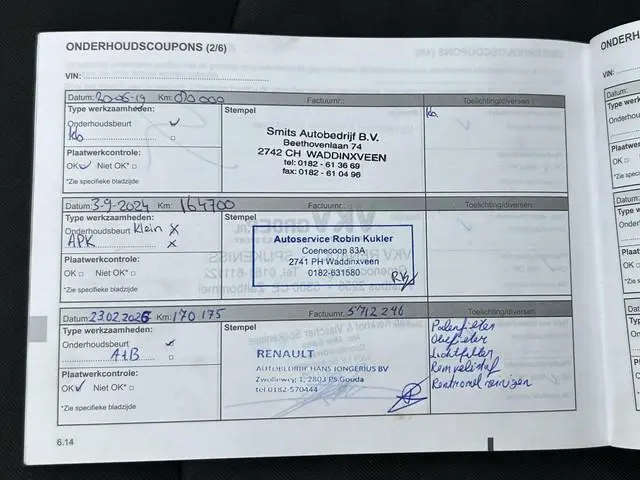 ONDERHOUDSCOUPONS (2/6)
VIN:
Datum: 20-06-19 Km: Factuurnr.: Toelichting/diversen
Type werkzaamheden: Stempel
Onderhoudsbeurt
Smits Autobedrijf B.V.
Beethovenlaan 74
2742 CH WADDINXVEEN
tel: 0182 - 61 36 69
fax: 0182 - 61 04 96
Plaatwerkcontrole:
OK Niet OK*
*Zie specifieke bladzijde
Datum: 3-9-2024 Km: 164700 Factuurnr.: Toelichting/diversen
Type werkzaamheden: Stempel
Onderhoudsbeurt Klein x
APK x
Autoservice Robin Kukler
Coenecoop 83A
2741 PH Waddinxveen
0182-631580
RK
Plaatwerkcontrole:
OK Niet OK*
*Zie specifieke bladzijde
Datum: 23.02.2026 Km: 170 175 Factuurnr.: 5712246 Toelichting/diversen
Type werkzaamheden: Stempel
Onderhoudsbeurt
A+B
RENAULT
AUTOBEDRIJF HANS JONGERIUS BV
Zwolleweg 1, 2803 PS Gouda
tel.0182-570444
Polenfilter
Oliefilter
Luchtfilter
Remvloeistof
Remtrommel reinigen
Plaatwerkcontrole:
OK Niet OK*
*Zie specifieke bladzijde
6.14